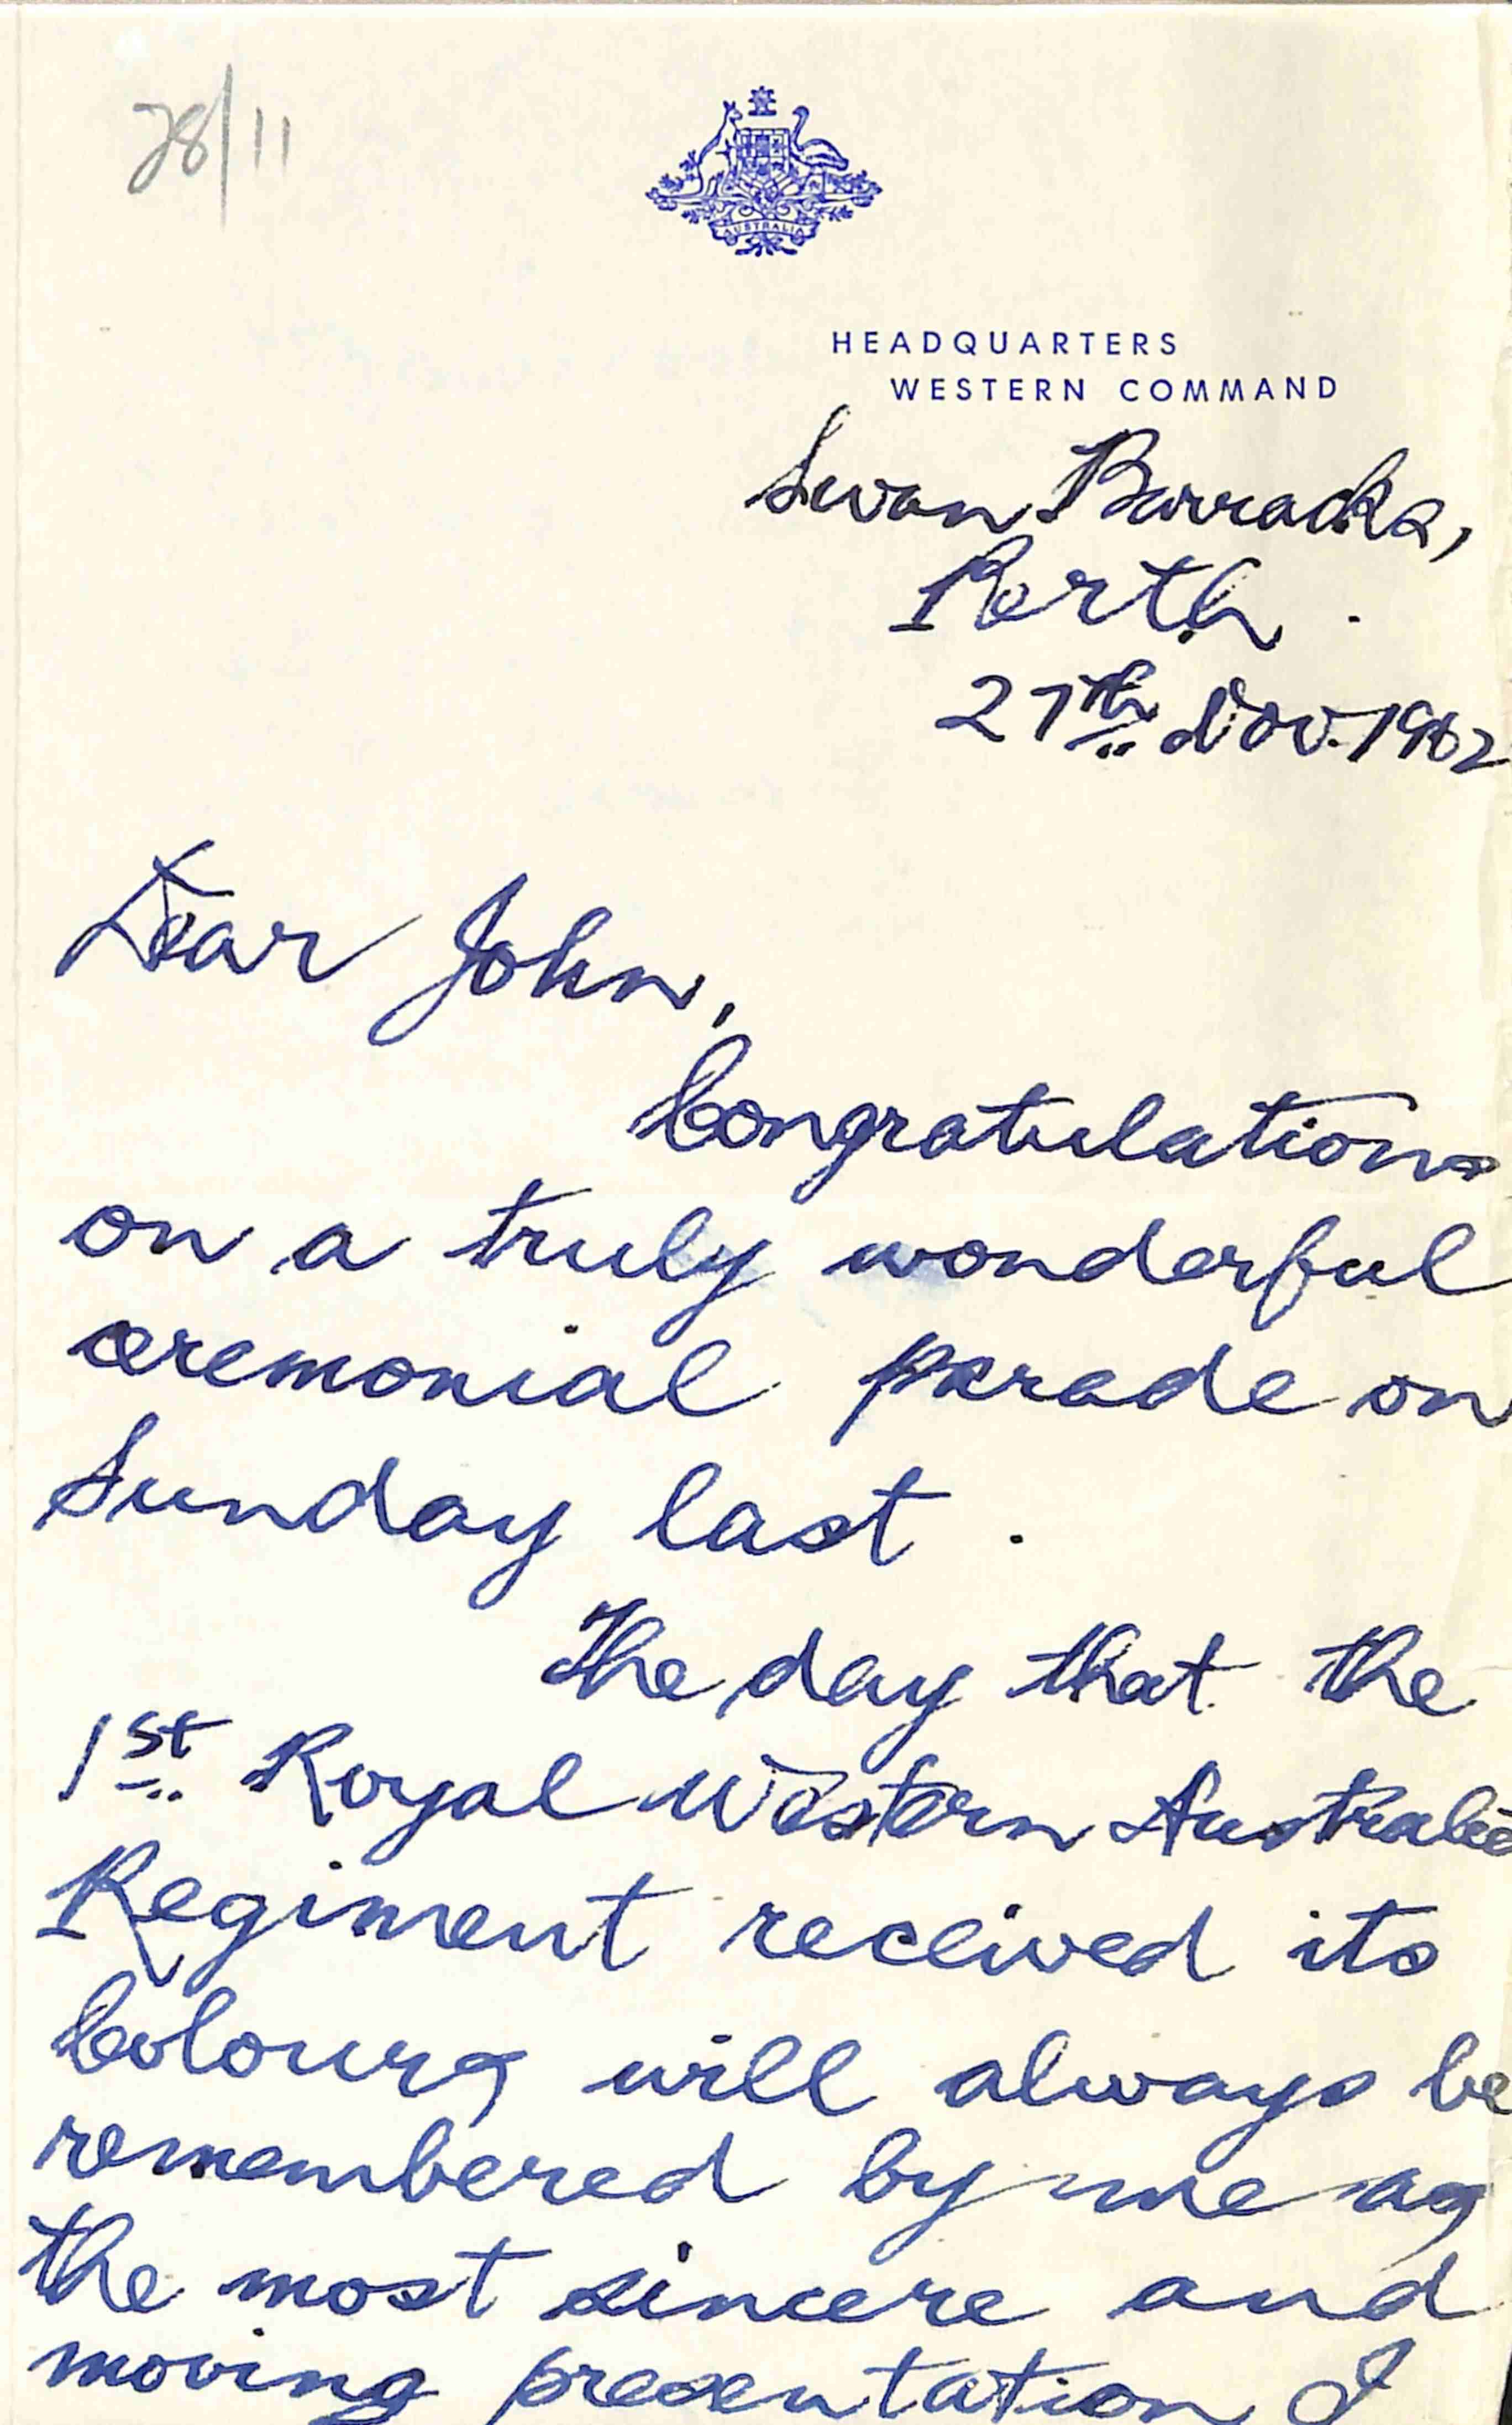 28/11
AUSTRALIA
HEADQUARTERS
WESTERN COMMAND
Swan Barracks,
Perth.
27th Nov. 1962
Dear John,
Congratulations
on a truly wonderful
ceremonial parade on
Sunday last.
The day that the
1st Royal Western Australia
Regiment received its
Colours will always be
remembered by me as
the most sincere and
moving presentation I